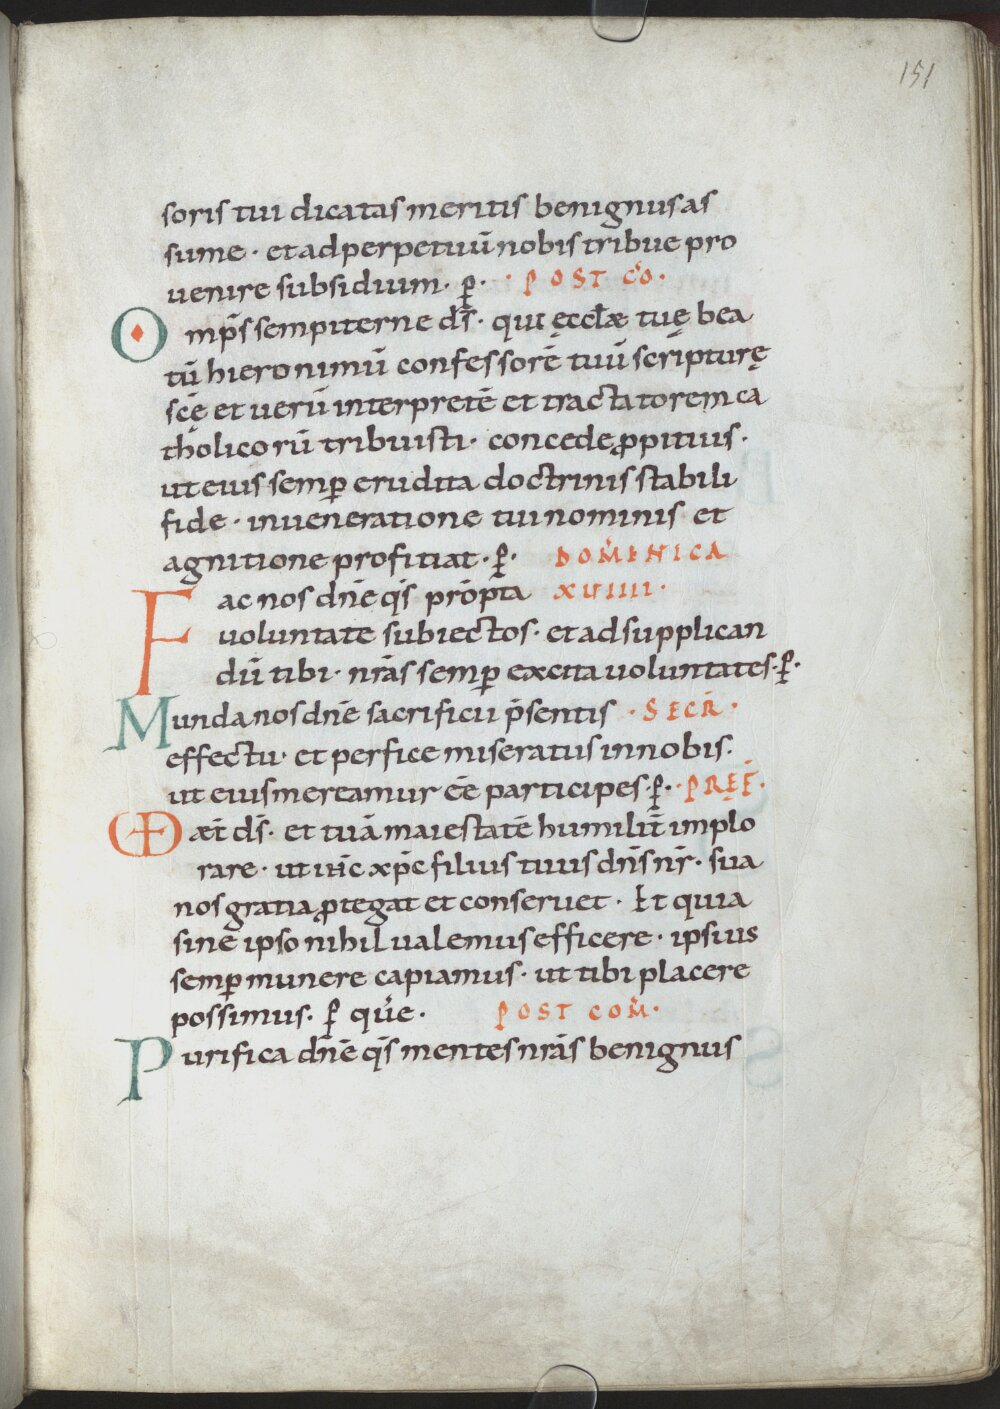 151
soris tui dicatas meritis benignus as
sume · et ad perpetuū nobis tribue pro
uenire subsidium · p̄ · · POST CO ·
Omp̄s sempiterne d̄s · qui ęccłæ tuę bea
tū hieronimū confessorē tuū scripturę
scę̄ et uerū interpretē et tractatorem ca
tholicorū tribuisti · concede ꝓpitius ·
ut eius semꝑ erudita doctrinis stabili
fide · in ueneratione tui nominis et
agnitione profitiat · p̄ · DOMENICA
Fac nos dn̄e qs̄ prōpta XUIIII ·
uoluntate subiectos · et ad supplican
dū tibi · nr̄as semꝑ excita uoluntates · p̄ ·
Munda nos dn̄e sacrificii p̄sentis · SECR̄ ·
effectu · et perfice miseratus in nobis ·
ut eius mereamur eē participes · p̄ · · PRĘF̄ ·
VD æt̄ d̄s · et tuā maiestatē humilit̄ implo
rare · ut ih̄c xp̄c filius tuus dn̄s nr̄ · sua
nos gratia ꝓtegat et conseruet · Et quia
sine ipso nihil ualemus efficere · ipsius
semꝑ munere capiamus · ut tibi placere
possimus · p̄ quē · POST COM̄ ·
Purifica dn̄e qs̄ mentes nr̄as benignus